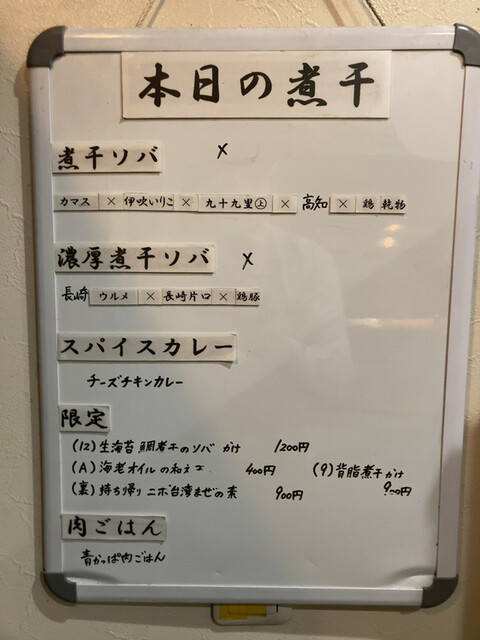 本日の煮干
煮干ソバ ×
カマス × 伊吹いりこ × 九十九里㊤ × 高知 × 鶏 乾物
濃厚煮干ソバ ×
長崎 ウルメ × 長崎片口 × 鶏豚
スパイスカレー
チーズチキンカレー
限定
(12) 生海苔 鯛煮干のソバ かけ 1200円
(A) 海老オイルの和え玉 400円 (9) 背脂煮干かけ 900円
(裏) 持ち帰り ニボ台湾まぜの素 900円
肉ごはん
青かっぱ肉ごはん